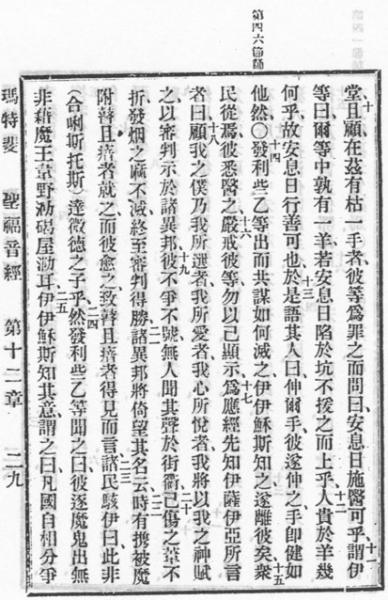 第四六節誦
十 十一
堂且顧在茲有枯一手者彼等爲罪之而問曰安息日施醫可乎謂伊
十二
等曰爾等中孰有一羊若安息日陷於坑不援之而上乎人貴於羊幾
十三
何乎故安息日行善可也於是語其人曰伸爾手彼遂伸之手卽健如
十四 十五
他然〇發利些乙等出而共謀如何滅之伊伊穌斯知之遂離彼矣衆
十六 十七
民從焉彼悉醫之嚴戒彼等勿以己顯示爲應經先知伊薩伊亞所言
十八
者曰顧我之僕乃我所選者我所愛者我心所悅者我將以我之神賦
十九 二十
之以審判示於諸異邦彼不爭不號無人聞其聲於街衢已傷之葦不
二一 二二
折發烟之麻不滅終至審判得勝諸異邦將倚望其名云時有攜被魔
二三
附瞽且瘖者就之而彼愈之致瞽且瘖者得見而言諸民駭伊曰此非
二四
(合唎斯托斯)達微德之子乎然發利些乙等聞之曰彼逐魔鬼出無
二五
非藉魔王韋野勒碣屋勒耳伊伊穌斯知其意謂之曰凡國自相分爭
瑪特斐 聖福音經 第十二章 二九